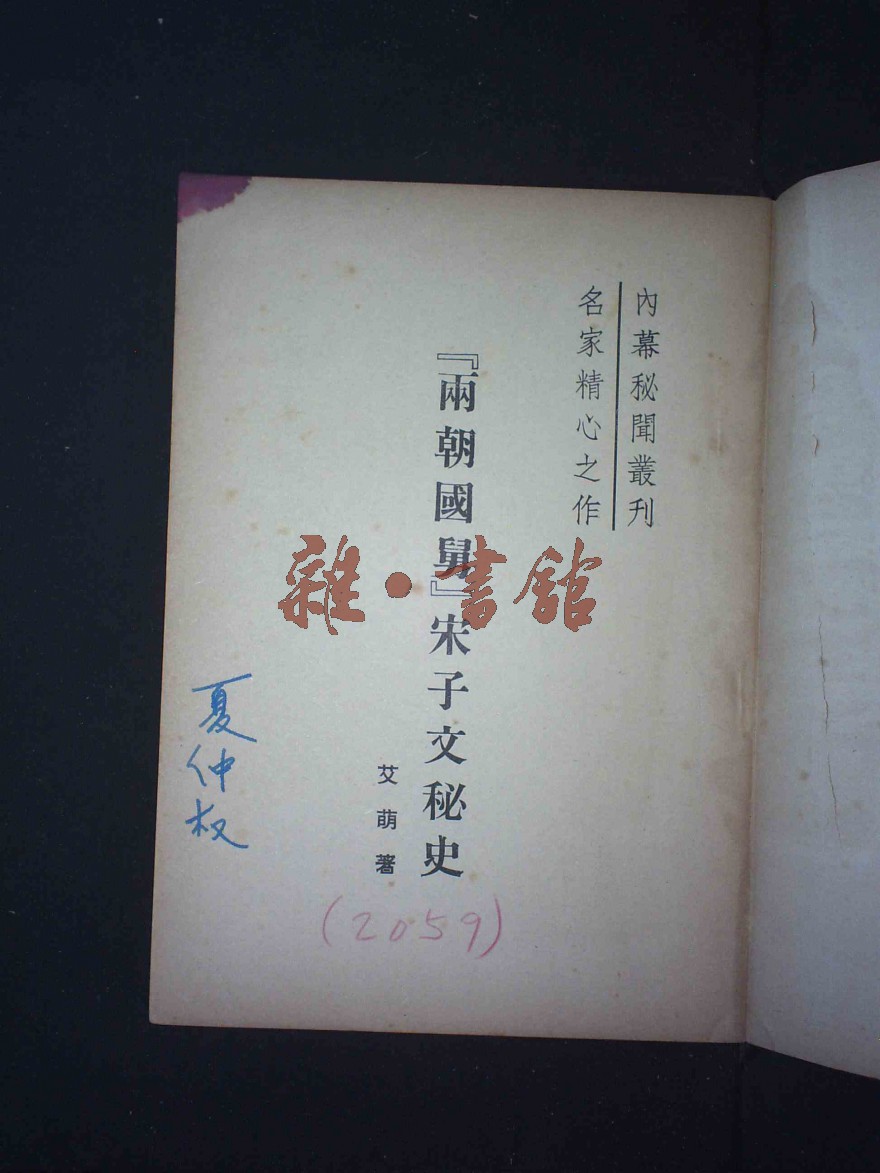 內幕秘聞叢刊
名家精心之作
『兩朝國舅』宋子文秘史
艾萌著
夏仲权
(2059)
雜·書館